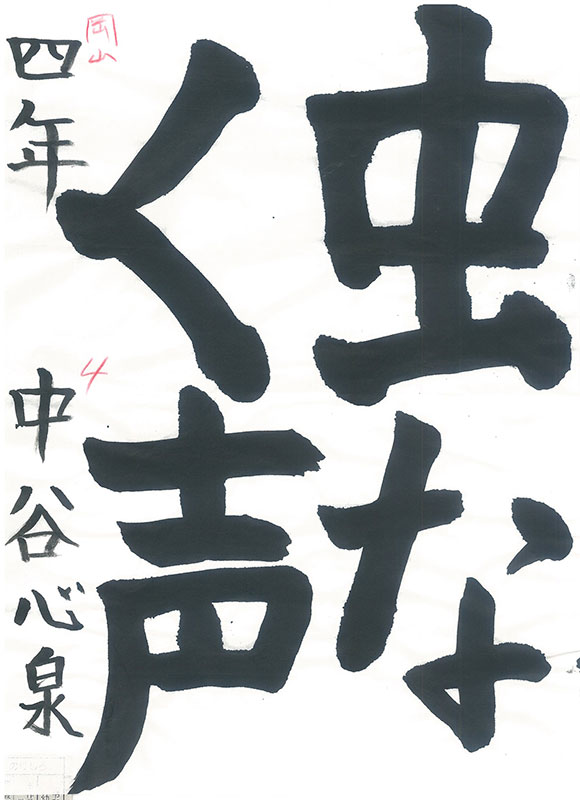 虫な
く声
岡山
四年
4
中谷心泉